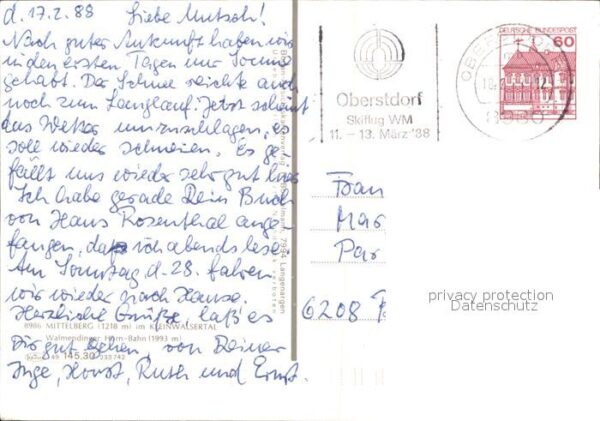 d. 17.2.88 Liebe Mutsch!
Nach guter Ankunft haben wir
in den ersten Tagen nur Sonne
gehabt. Der Schnee reichte auch
noch zum Langlauf. Jetzt scheint
das Wetter umzuschlagen, es
soll wieder schneien. Es ge-
fällt uns wieder sehr gut hier
Ich habe gerade Dein Buch
von Hans Rosenthal ange-
fangen, das ich abends lese
Am Sonntag d. 28. fahren
wir wieder nach Hause.
Herzliche Grüße, laß es
Dir gut gehen, von Deiner
Inge, Horst, Ruth und Ernst.
8986 MITTELBERG (1218 m) im KLEINWALSERTAL
Walmendinger Horn-Bahn (1993 m)
145.30
7994 Langenargen
Oberstdorf
Skiflug WM
11. - 13. März '88
DEUTSCHE BUNDESPOST
60
Frau
Mar
Par
6208
privacy protection
Datenschutz